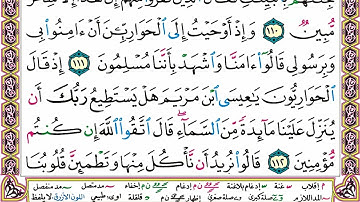 مُّبِينٌ ١١٠ وَإِذْ أَوْحَيْتُ إِلَى ٱلْحَوَارِيِّـۧنَ أَنْ ءَامِنُوا۟ بِى
وَبِرَسُولِى قَالُوٓا۟ ءَامَنَّا وَٱشْهَدْ بِأَنَّنَا مُسْلِمُونَ ١١١ إِذْ قَالَ
ٱلْحَوَارِيُّونَ يَـٰعِيسَى ٱبْنَ مَرْيَمَ هَلْ يَسْتَطِيعُ رَبُّكَ أَن
يُنَزِّلَ عَلَيْنَا مَآئِدَةً مِّنَ ٱلسَّمَآءِ ۖ قَالَ ٱتَّقُوا۟ ٱللَّهَ إِن كُنتُم
مُّؤْمِنِينَ ١١٢ قَالُوا۟ نُرِيدُ أَن نَّأْكُلَ مِنْهَا وَتَطْمَئِنَّ قُلُوبُنَا